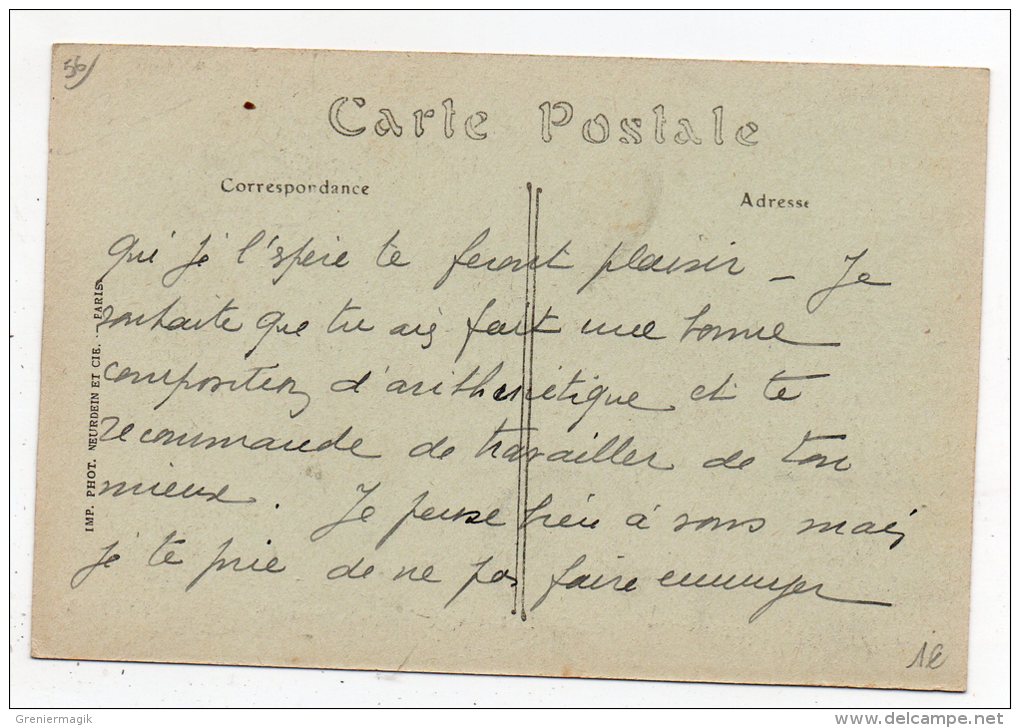 56
Carte Postale
Correspondance
Adresse
qui je l'espère te feront plaisir – Je
souhaite que tu ais fait une bonne
composition d'arithmétique et te
recommande de travailler de ton
mieux. Je pense bien à vous mais
je te prie de ne pas faire ennuyer
IMP. PHOT. NEURDEIN ET CIE. - PARIS.
1€
Greniermagik
www.delcampe.net